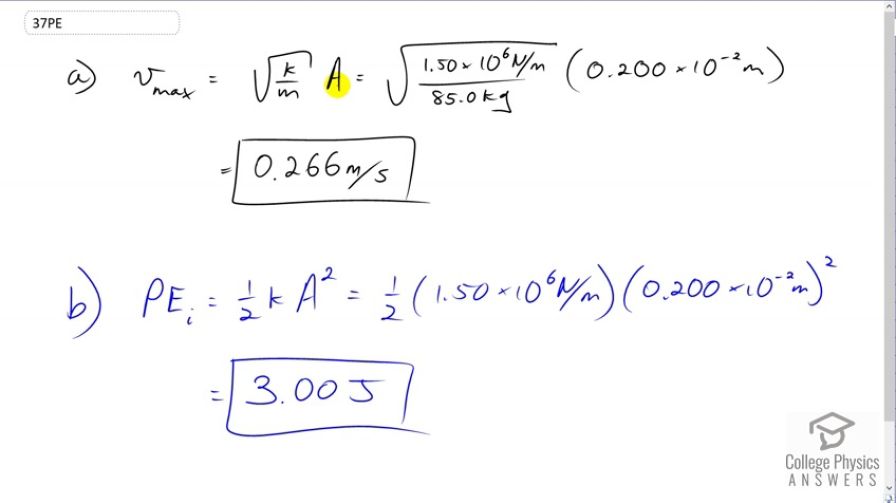 37PE
a) v_max = √(k/m) A = √(1.50 × 10⁶ N/m / 85.0 kg) (0.200 × 10⁻² m)
= 0.266 m/s
b) PE_i = 1/2 k A² = 1/2 (1.50 × 10⁶ N/m)(0.200 × 10⁻² m)²
= 3.00 J
College Physics
ANSWERS